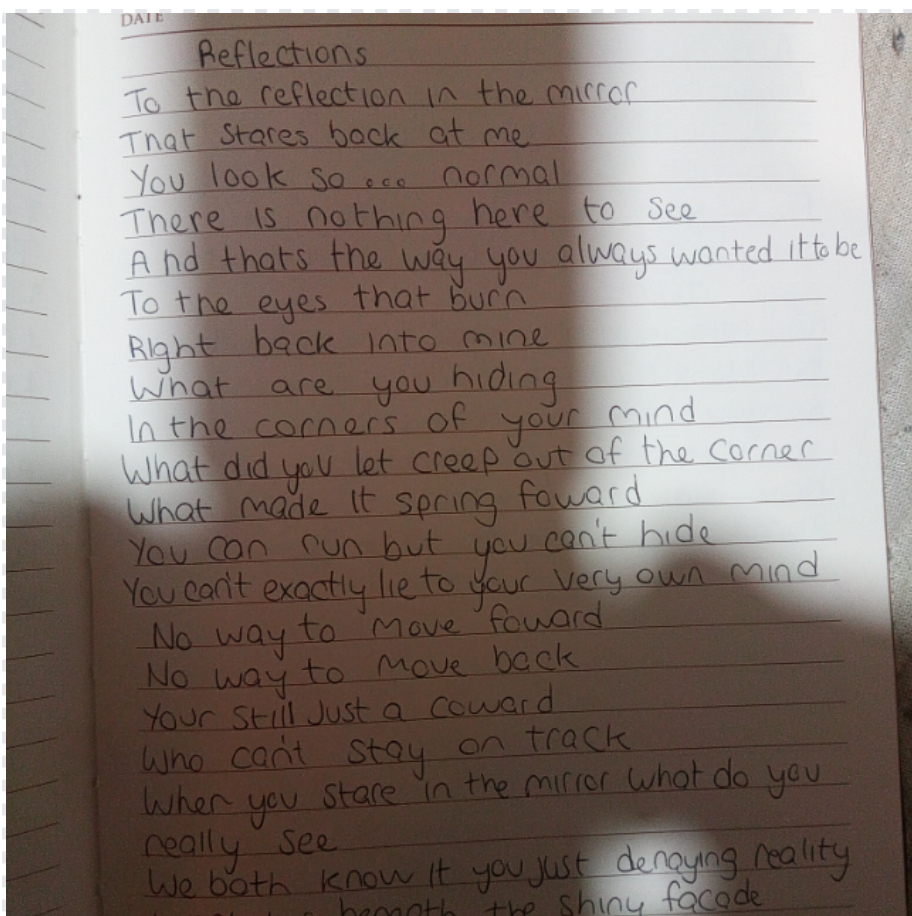 DATE
Reflections
To the reflection in the mirror
That stares back at me
You look so... normal
There is nothing here to see
And thats the way you always wanted it to be
To the eyes that burn
Right back into mine
What are you hiding
In the corners of your mind
What did you let creep out of the corner
What made it spring foward
You can run but you can't hide
You can't exactly lie to your very own mind
No way to move foward
No way to move back
Your still just a coward
Who can't stay on track
When you stare in the mirror what do you
really see
We both know it you just denaying reality
beneath the shiny facade